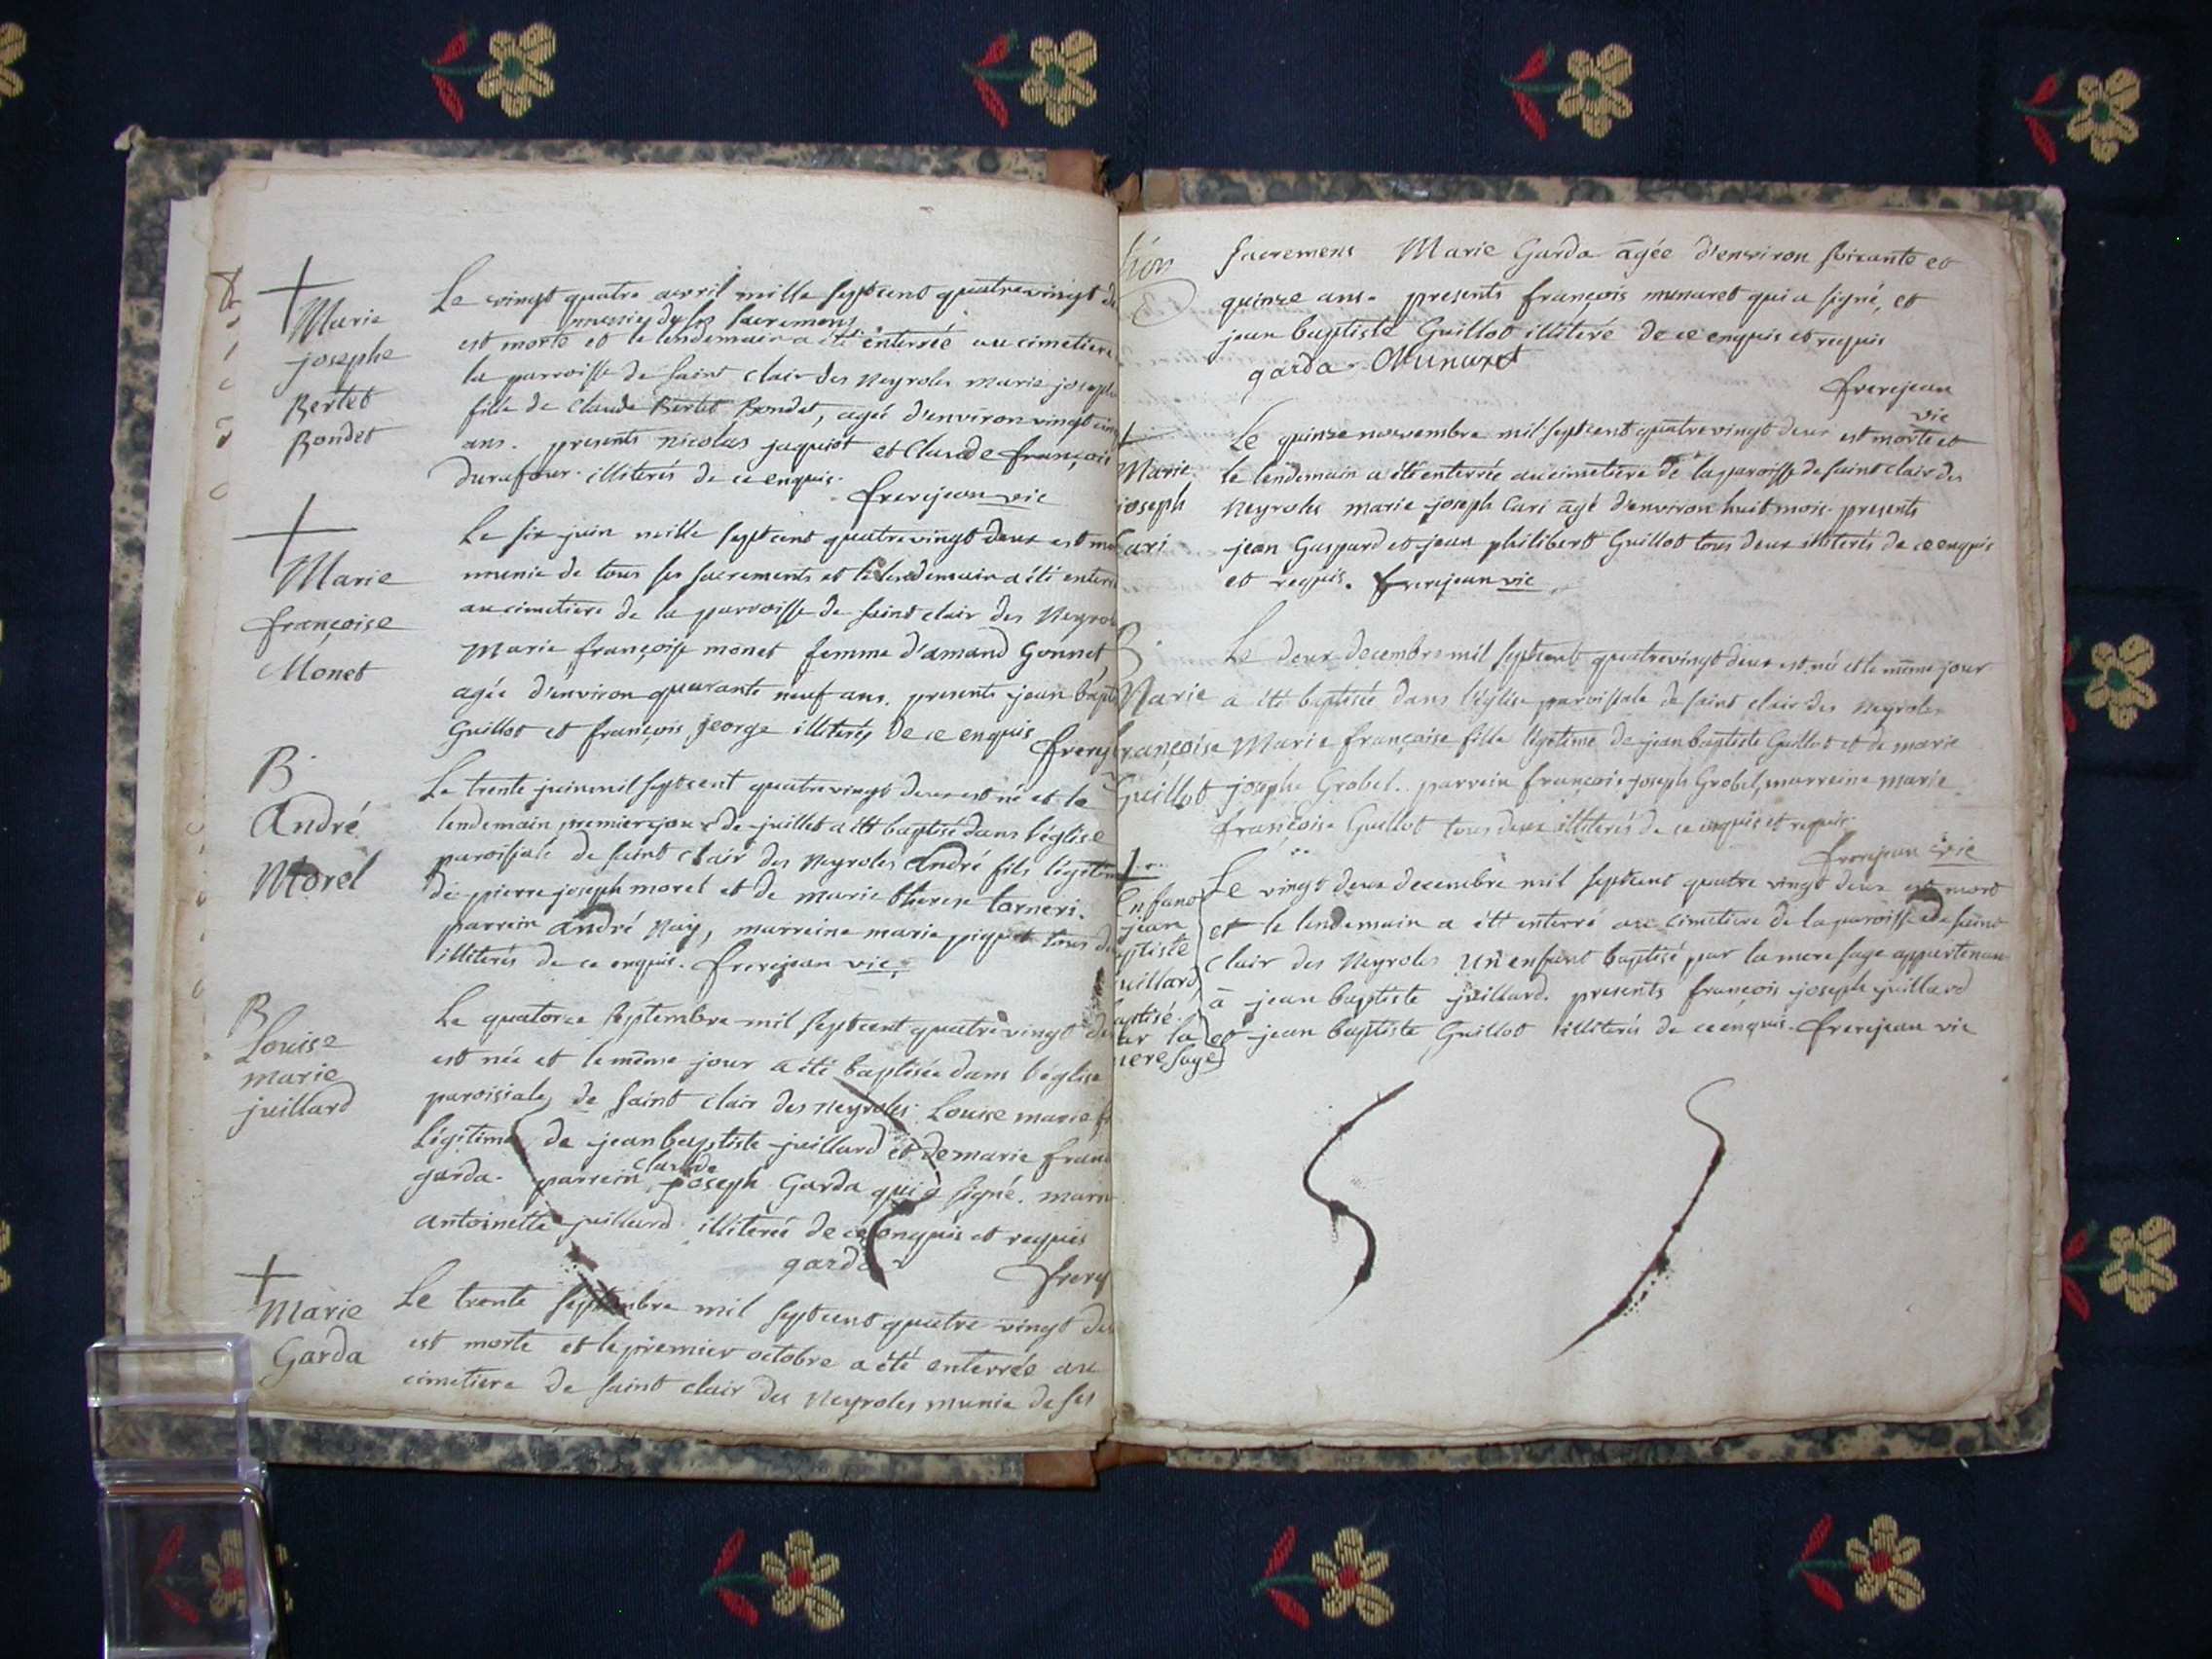 Marie
josephe
Bertet
Bondet
Le vingt quatre avril mille septcent quatrevingt
munie de ses sacremens
est morte et le lendemain a été enterrée au cimetiere
la parroisse de saint clair des Neyroles marie joseph
fille de claude Bertet Bondet, agée d'environ vingt
ans. presents nicolas jaquiot et Claude françois
durafour illiterés de ce enquis.
frerejean vic
Marie
françoise
Monet
Le six juin mille septcent quatrevingt deux est
munie de tous ses sacrements et le lendemain a été
au cimetiere de la parroisse de saint clair des
Marie françoise monet femme d'amand Gonnet
agée d'environ quarante neuf ans. presents jean
Guillot et françois george illiterés de ce enquis
B
André
Morel
Le trente juin mil septcent quatrevingt deux est né et le
lendemain premier jour de juillet a été baptisé dans l'église
paroissiale de saint clair des Neyroles André fils
de pierre joseph morel et de marie therese tarneri.
parrein andré Nay, marreine marie piquet tous
illiterés de ce enquis. frerejean vic.
B
Louise
marie
juillard
Le quatorze septembre mil septcent quatrevingt
est née et le même jour a été baptisée dans l'église
paroisiale de saint clair des neyroles Louise marie
légitime de jean baptiste juillard et de marie
claude
garda. parrein joseph Garda qui a signé.
antoinette juillard illiterée de ce enquis et requis
garda
Marie
Garda
Le trente septembre mil septcent quatre vingt
est morte et le premier octobre a été enterrée au
cimetiere de saint clair des Neyroles munie de ses
sacremens Marie Garda âgée d'environ soixante et
quinze ans. presents françois munaret qui a signé, et
jean baptiste Guillot illiteré de ce enquis et requis
garda Munaret
frerejean
vic
Marie
joseph
Cari
Le quinze novembre mil septcent quatrevingt deux est morte et
le lendemain a été enterrée au cimetiere de la paroisse de saint clair des
Neyroles marie joseph Cari agé d'environ huit mois. presents
jean Gaspard et jean philibert Guillot tous deux illiterés de ce enquis
et requis. frerejean vic
B
Marie
françoise
Guillot
Le deux decembre mil septcent quatrevingt deux est né et le même jour
a été baptisée dans l'église paroissiale de saint clair des neyroles
Marie françoise fille légitime de jean baptiste Guillot et de marie
josephe Grobel. parrein françois joseph Grobel, marreine marie
françoise Guillot tous deux illiterés de ce enquis et requis
frerejean vic
Enfant
jean
Le vingt deux decembre mil septcent quatre vingt deux est mort
et le lendemain a été enterré au cimetiere de la paroisse de saint
clair des Neyroles un enfant baptisé par la mere sage appartenant
à jean baptiste juillard. presents françois joseph juillard
et jean baptiste Guillot illiterés de ce enquis. frerejean vic